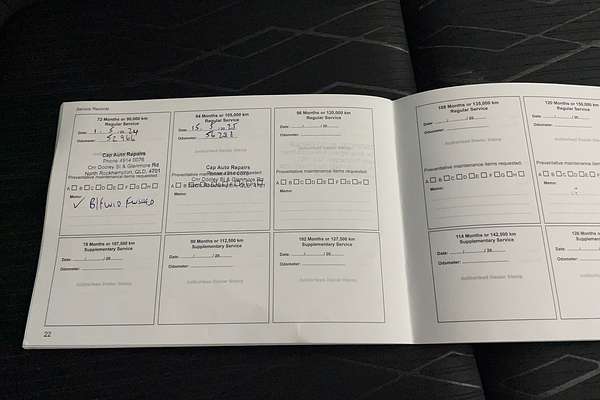 Service Record
72 Months or 90,000 km
Regular Service
Date: 1 / 5 / 20 24
Odometer: 52 966
Cap Auto Repairs
Phone 4914 0076
Cnr Dooley St & Glenmore Rd
North Rockhampton, QLD, 4701
Preventative maintenance items requested:
A B C D E F G H
Memo:
✓ B/Fluid Flushed
84 Months or 105,000 km
Regular Service
Date: 15 / 5 / 20 25
Odometer: 56 223
Cap Auto Repairs
Phone 4914 0076
Cnr Dooley St & Glenmore Rd
Preventative maintenance items requested:
Memo:
96 Months or 120,000 km
Regular Service
Date: / / 20
Odometer:
Authorised Dealer Stamp
Preventative maintenance items requested:
A B C D E F G H
Memo:
108 Months or 135,000 km
Regular Service
Date: / / 20
Odometer:
Authorised Dealer Stamp
Preventative maintenance items requested:
A B C D E F G H
Memo:
120 Months or 150,000
Regular Service
Date: / / 20
Odometer:
Preventative maintenance items
A B C D E F
Memo:
78 Months or 97,500 km
Supplementary Service
Date: / / 20
Odometer:
Authorised Dealer Stamp
90 Months or 112,500 km
Supplementary Service
Date: / / 20
Odometer:
Authorised Dealer Stamp
102 Months or 127,500 km
Supplementary Service
Date: / / 20
Odometer:
Authorised Dealer Stamp
114 Months or 142,500 km
Supplementary Service
Date: / / 20
Odometer:
Authorised Dealer Stamp
126 Months or
Supplementary
Date: / / 20
Odometer:
Authorised
22